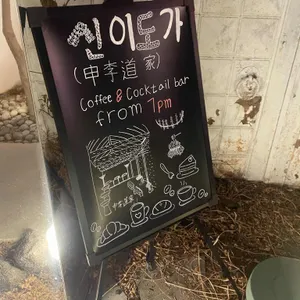 신이도가
(申李道家)
Coffee & Cocktail bar
from 7pm